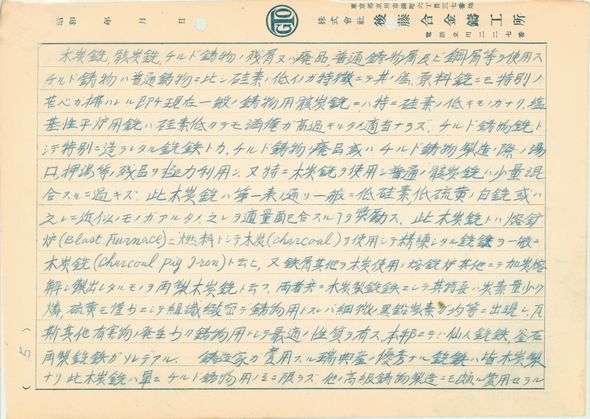 東京都立川市錦町六丁目三七番地
昭和　年　月　日
GTO
株式會社 後藤合金鑄工所
電話立川二二七番
木炭銑、骸炭銑、チルド鋳物ノ残屑又ハ廃品普通鋳物屑及ビ鋼屑等ヲ使用ス
チルド鋳物ハ普通鋳物ニ比シ硅素ノ低イノガ特徴ニテ其ノ為、原料銑ニモ特別ノ
苦心ガ拂ハレル即チ現在一般ノ鋳物用骸炭銑ニハ特ニ硅素ノ低キモノナク、塩
基性平炉用銑ハ硅素低カラモ満俺ガ高過ギルタメ適当ナラズ、チルド鋳物銑ト
シテ特別ニ造ラレタル銑鉄トカ、チルド鋳物ノ廃品或ハチルド鋳物製造ノ際ノ湯
口押湯等ノ残品ヲ極力利用シ、又特ニ木炭銑ヲ使用シ普通ノ骸炭銑ハ少量混
合スルニ過キズ 此木炭銑ハ第一表ノ通リ一般ニ低硅素低硫黄ノ白銑或ハ
之レニ近似ノモノガアルタメ之レヲ適量配合スル
此木炭銑トハ熔鉱
炉(Blast Furnace)ニ燃料トシテ木炭(charcoal)ヲ使用シテ精煉シタル銑鉄ヲ一般ニ
木炭銑(Charcoal Pig Iron)ト云ヒ、又鉄屑其他ヲ木炭使用ノ熔銑炉其他ニテ加炭熔
解シ製出シタルモノヲ再製木炭銑ト云フ、両者共ニ木炭製銑鉄ニシテ其特長ハ炭素量少ク
燐、硫黄モ僅少ニシテ組織緻密デ鋳物用トスレバ細微ノ黒鉛炭素ガ均等ニ出現シ、瓦
斯其他有害物ノ発生少ク鋳物用トシテ最適ノ性質ヲ有ス、本邦ニテハ仙人銑鉄、釜石
再製銑鉄ガソレデアル、 鋳造家ガ賞用スル瑞典産ノ優秀ナル銑鉄ハ皆木炭製
ナリ 此木炭銑ハ單ニチルド鋳物用ノミニ限ラズ 他ノ高級鋳物製造ニモ頗ル賞用セラル
(5)